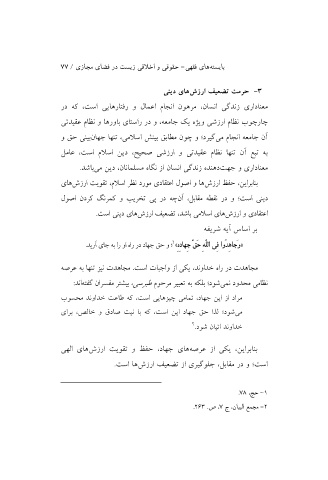 بایسته‌های فقهی - حقوقی و اخلاقی زیست در فضای مجازی / ۷۷
۳- حرمت تضعیف ارزش‌های دینی
معناداری زندگی انسان، مرهون انجام اعمال و رفتارهایی است، که در
چارچوب نظام ارزشی ویژه یک جامعه، و در راستای باورها و نظام عقیدتی
آن جامعه انجام می‌گیرد؛ و چون مطابق بینش اسلامی، تنها جهان‌بینی حق و
به تبع آن تنها نظام عقیدتی و ارزشی صحیح، دین اسلام است، عامل
معناداری و جهت‌دهنده زندگی انسان از نگاه مسلمانان، دین می‌باشد.
بنابراین، حفظ ارزش‌ها و اصول اعتقادی مورد نظر اسلام، تقویت ارزش‌های
دینی است؛ و در نقطه مقابل، آن‌چه در پی تخریب و کمرنگ کردن اصول
اعتقادی و ارزش‌های اسلامی باشد، تضعیف ارزش‌های دینی است.
بر اساس آیه شریفه
«وَجَاهِدُوا فِی اللَّهِ حَقَّ جِهَادِهِ»۱؛ و حق جهاد در راه او را به جای آرید.
مجاهدت در راه خداوند، یکی از واجبات است. مجاهدت نیز تنها به عرصه
نظامی محدود نمی‌شود؛ بلکه به تعبیر مرحوم طبرسی، بیشتر مفسران گفته‌اند:
مراد از این جهاد، تمامی چیزهایی است، که طاعت خداوند محسوب
می‌شود؛ لذا حق جهاد این است، که با نیت صادق و خالص، برای
خداوند اتیان شود.۲
بنابراین، یکی از عرصه‌های جهاد، حفظ و تقویت ارزش‌های الهی
است؛ و در مقابل، جلوگیری از تضعیف ارزش‌ها است.
۱- حج، ۷۸.
۲- مجمع البیان، ج ۷، ص. ۲۶۳.